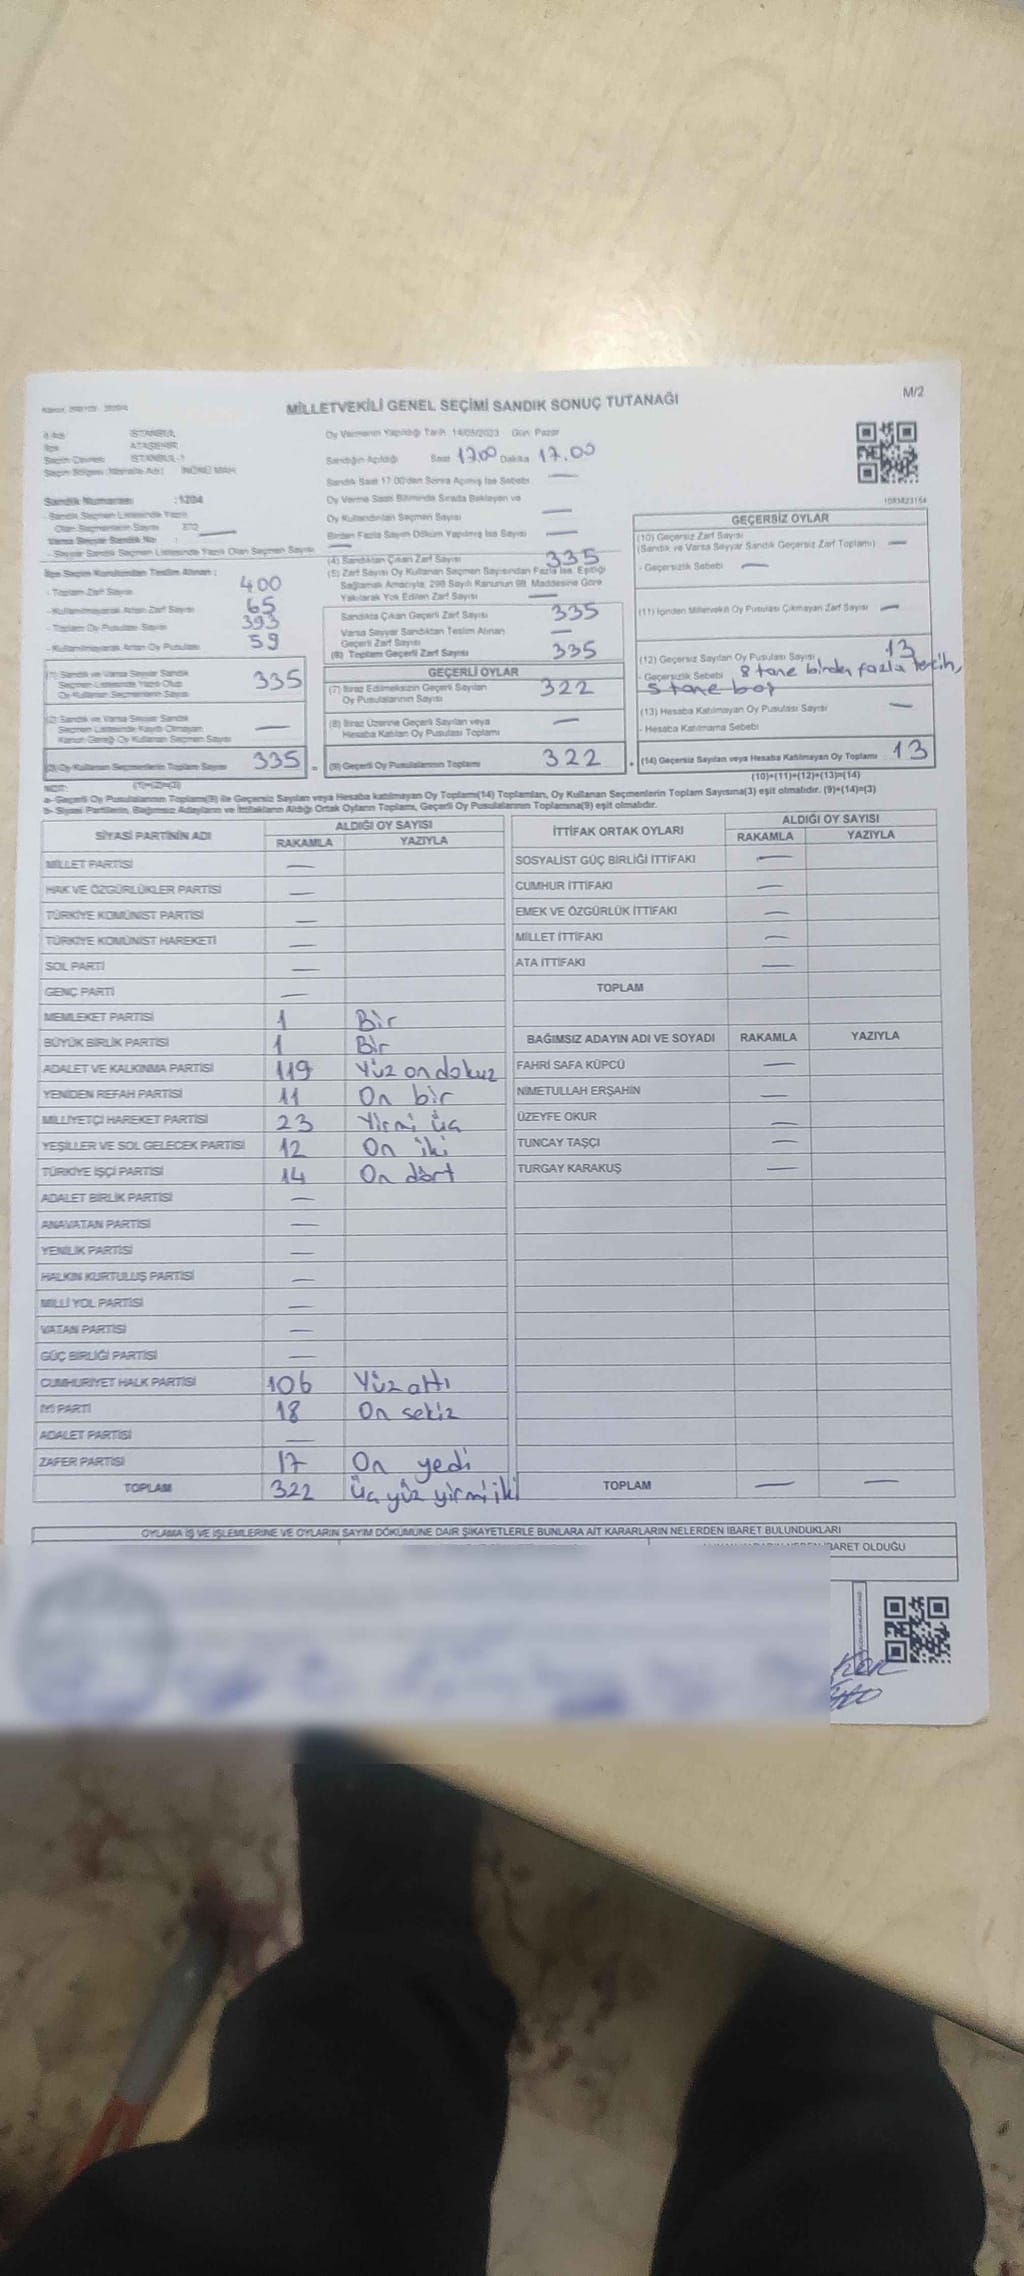 MİLLETVEKİLİ GENEL SEÇİMİ SANDIK SONUÇ TUTANAĞI
M/2
İli Adı İSTANBUL
İlçe ATAŞEHİR
Seçim Çevresi İSTANBUL-1
Seçim Bölgesi (Mahalle Adı) İNÖNÜ MAH.
Oy Vermenin Yapıldığı Tarih 14/05/2023 Gün Pazar
Sandığın Açıldığı Saat 17.00 Dakika 17.00
Sandık Saat 17.00'den Sonra Açılmış İse Sebebi —
Oy Verme Saati Bitiminde Sırada Bekleyen ve
Oy Kullandırılan Seçmen Sayısı —
Birden Fazla Sayım Döküm Yapılmış İse Sayısı —
1083823154
Sandık Numarası :1204
- Sandık Seçmen Listesinde Yazılı
Olan Seçmenlerin Sayısı
Varsa Seyyar Sandık No : —
- Seyyar Sandık Seçmen Listesinde Yazılı Olan Seçmen Sayısı —
İlçe Seçim Kurulundan Teslim Alınan :
- Toplam Zarf Sayısı 400
- Kullanılmayarak Artan Zarf Sayısı 65
- Toplam Oy Pusulası Sayısı 393
- Kullanılmayarak Artan Oy Pusulası 59
(1) Sandık ve Varsa Seyyar Sandık
Seçmen Listesinde Yazılı Olup
Oy Kullanan Seçmenlerin Sayısı 335
(2) Sandık ve Varsa Seyyar Sandık
Seçmen Listesinde Kaydı Olmayan
Kanun Gereği Oy Kullanan Seçmen Sayısı —
(3) Oy Kullanan Seçmenlerin Toplam Sayısı 335
(1)+(2)=(3)
(4) Sandıktan Çıkan Zarf Sayısı 335
(5) Zarf Sayısı Oy Kullanan Seçmen Sayısından Fazla İse, Eşitliği
Sağlamak Amacıyla, 298 Sayılı Kanunun 98. Maddesine Göre
Yakılarak Yok Edilen Zarf Sayısı —
Sandıkta Çıkan Geçerli Zarf Sayısı 335
Varsa Seyyar Sandıktan Teslim Alınan
Geçerli Zarf Sayısı —
(6) Toplam Geçerli Zarf Sayısı 335
GEÇERLİ OYLAR
(7) İtiraz Edilmeksizin Geçerli Sayılan
Oy Pusulalarının Sayısı 322
(8) İtiraz Üzerine Geçerli Sayılan veya
Hesaba Katılan Oy Pusulası Toplamı —
(9) Geçerli Oy Pusulalarının Toplamı 322
GEÇERSİZ OYLAR
(10) Geçersiz Zarf Sayısı
(Sandık ve Varsa Seyyar Sandık Geçersiz Zarf Toplamı) —
- Geçersizlik Sebebi —
(11) İçinden Milletvekili Oy Pusulası Çıkmayan Zarf Sayısı —
(12) Geçersiz Sayılan Oy Pusulası Sayısı 13
- Geçersizlik Sebebi 8 tane birden fazla tercih,
5 tane boş
(13) Hesaba Katılmayan Oy Pusulası Sayısı —
- Hesaba Katılmama Sebebi
(14) Geçersiz Sayılan veya Hesaba Katılmayan Oy Toplamı 13
(10)+(11)+(12)+(13)=(14)
NOT:
a- Geçerli Oy Pusulalarının Toplamı(9) ile Geçersiz Sayılan veya Hesaba katılmayan Oy Toplamı(14) Toplamları, Oy Kullanan Seçmenlerin Toplam Sayısına(3) eşit olmalıdır. (9)+(14)=(3)
b- Siyasi Partilerin, Bağımsız Adayların ve İttifakların Aldığı Ortak Oyların Toplamı, Geçerli Oy Pusulalarının Toplamına(9) eşit olmalıdır.
SİYASİ PARTİNİN ADI ALDIĞI OY SAYISI
RAKAMLA YAZIYLA
MİLLET PARTİSİ —
HAK VE ÖZGÜRLÜKLER PARTİSİ —
TÜRKİYE KOMÜNİST PARTİSİ —
TÜRKİYE KOMÜNİST HAREKETİ —
SOL PARTİ —
GENÇ PARTİ —
MEMLEKET PARTİSİ 1 Bir
BÜYÜK BİRLİK PARTİSİ 1 Bir
ADALET VE KALKINMA PARTİSİ 119 Yüz on dokuz
YENİDEN REFAH PARTİSİ 11 On bir
MİLLİYETÇİ HAREKET PARTİSİ 23 Yirmi üç
YEŞİLLER VE SOL GELECEK PARTİSİ 12 On iki
TÜRKİYE İŞÇİ PARTİSİ 14 On dört
ADALET BİRLİK PARTİSİ —
ANAVATAN PARTİSİ —
YENİLİK PARTİSİ —
HALKIN KURTULUŞ PARTİSİ —
MİLLİ YOL PARTİSİ —
VATAN PARTİSİ —
GÜÇ BİRLİĞİ PARTİSİ —
CUMHURİYET HALK PARTİSİ 106 Yüz altı
İYİ PARTİ 18 On sekiz
ADALET PARTİSİ —
ZAFER PARTİSİ 17 On yedi
TOPLAM 322 Üç yüz yirmi iki
İTTİFAK ORTAK OYLARI ALDIĞI OY SAYISI
RAKAMLA YAZIYLA
SOSYALİST GÜÇ BİRLİĞİ İTTİFAKI —
CUMHUR İTTİFAKI —
EMEK VE ÖZGÜRLÜK İTTİFAKI —
MİLLET İTTİFAKI —
ATA İTTİFAKI —
TOPLAM
BAĞIMSIZ ADAYIN ADI VE SOYADI RAKAMLA YAZIYLA
FAHRİ SAFA KÜPCÜ —
NİMETULLAH ERŞAHİN —
ÜZEYFE OKUR —
TUNCAY TAŞÇI —
TURGAY KARAKUŞ —
TOPLAM — —
OYLAMA İŞ VE İŞLEMLERİNE VE OYLARIN SAYIM DÖKÜMÜNE DAİR ŞİKAYETLERLE BUNLARA AİT KARARLARIN NELERDEN İBARET BULUNDUKLARI
OLDUĞU